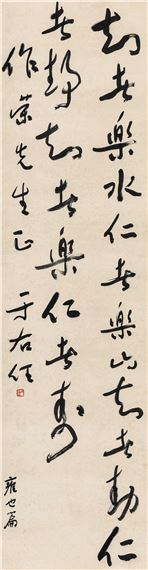 知者樂水仁者樂山知者動仁
者靜知者樂仁者壽
作榮先生正 于右任
雍也篇